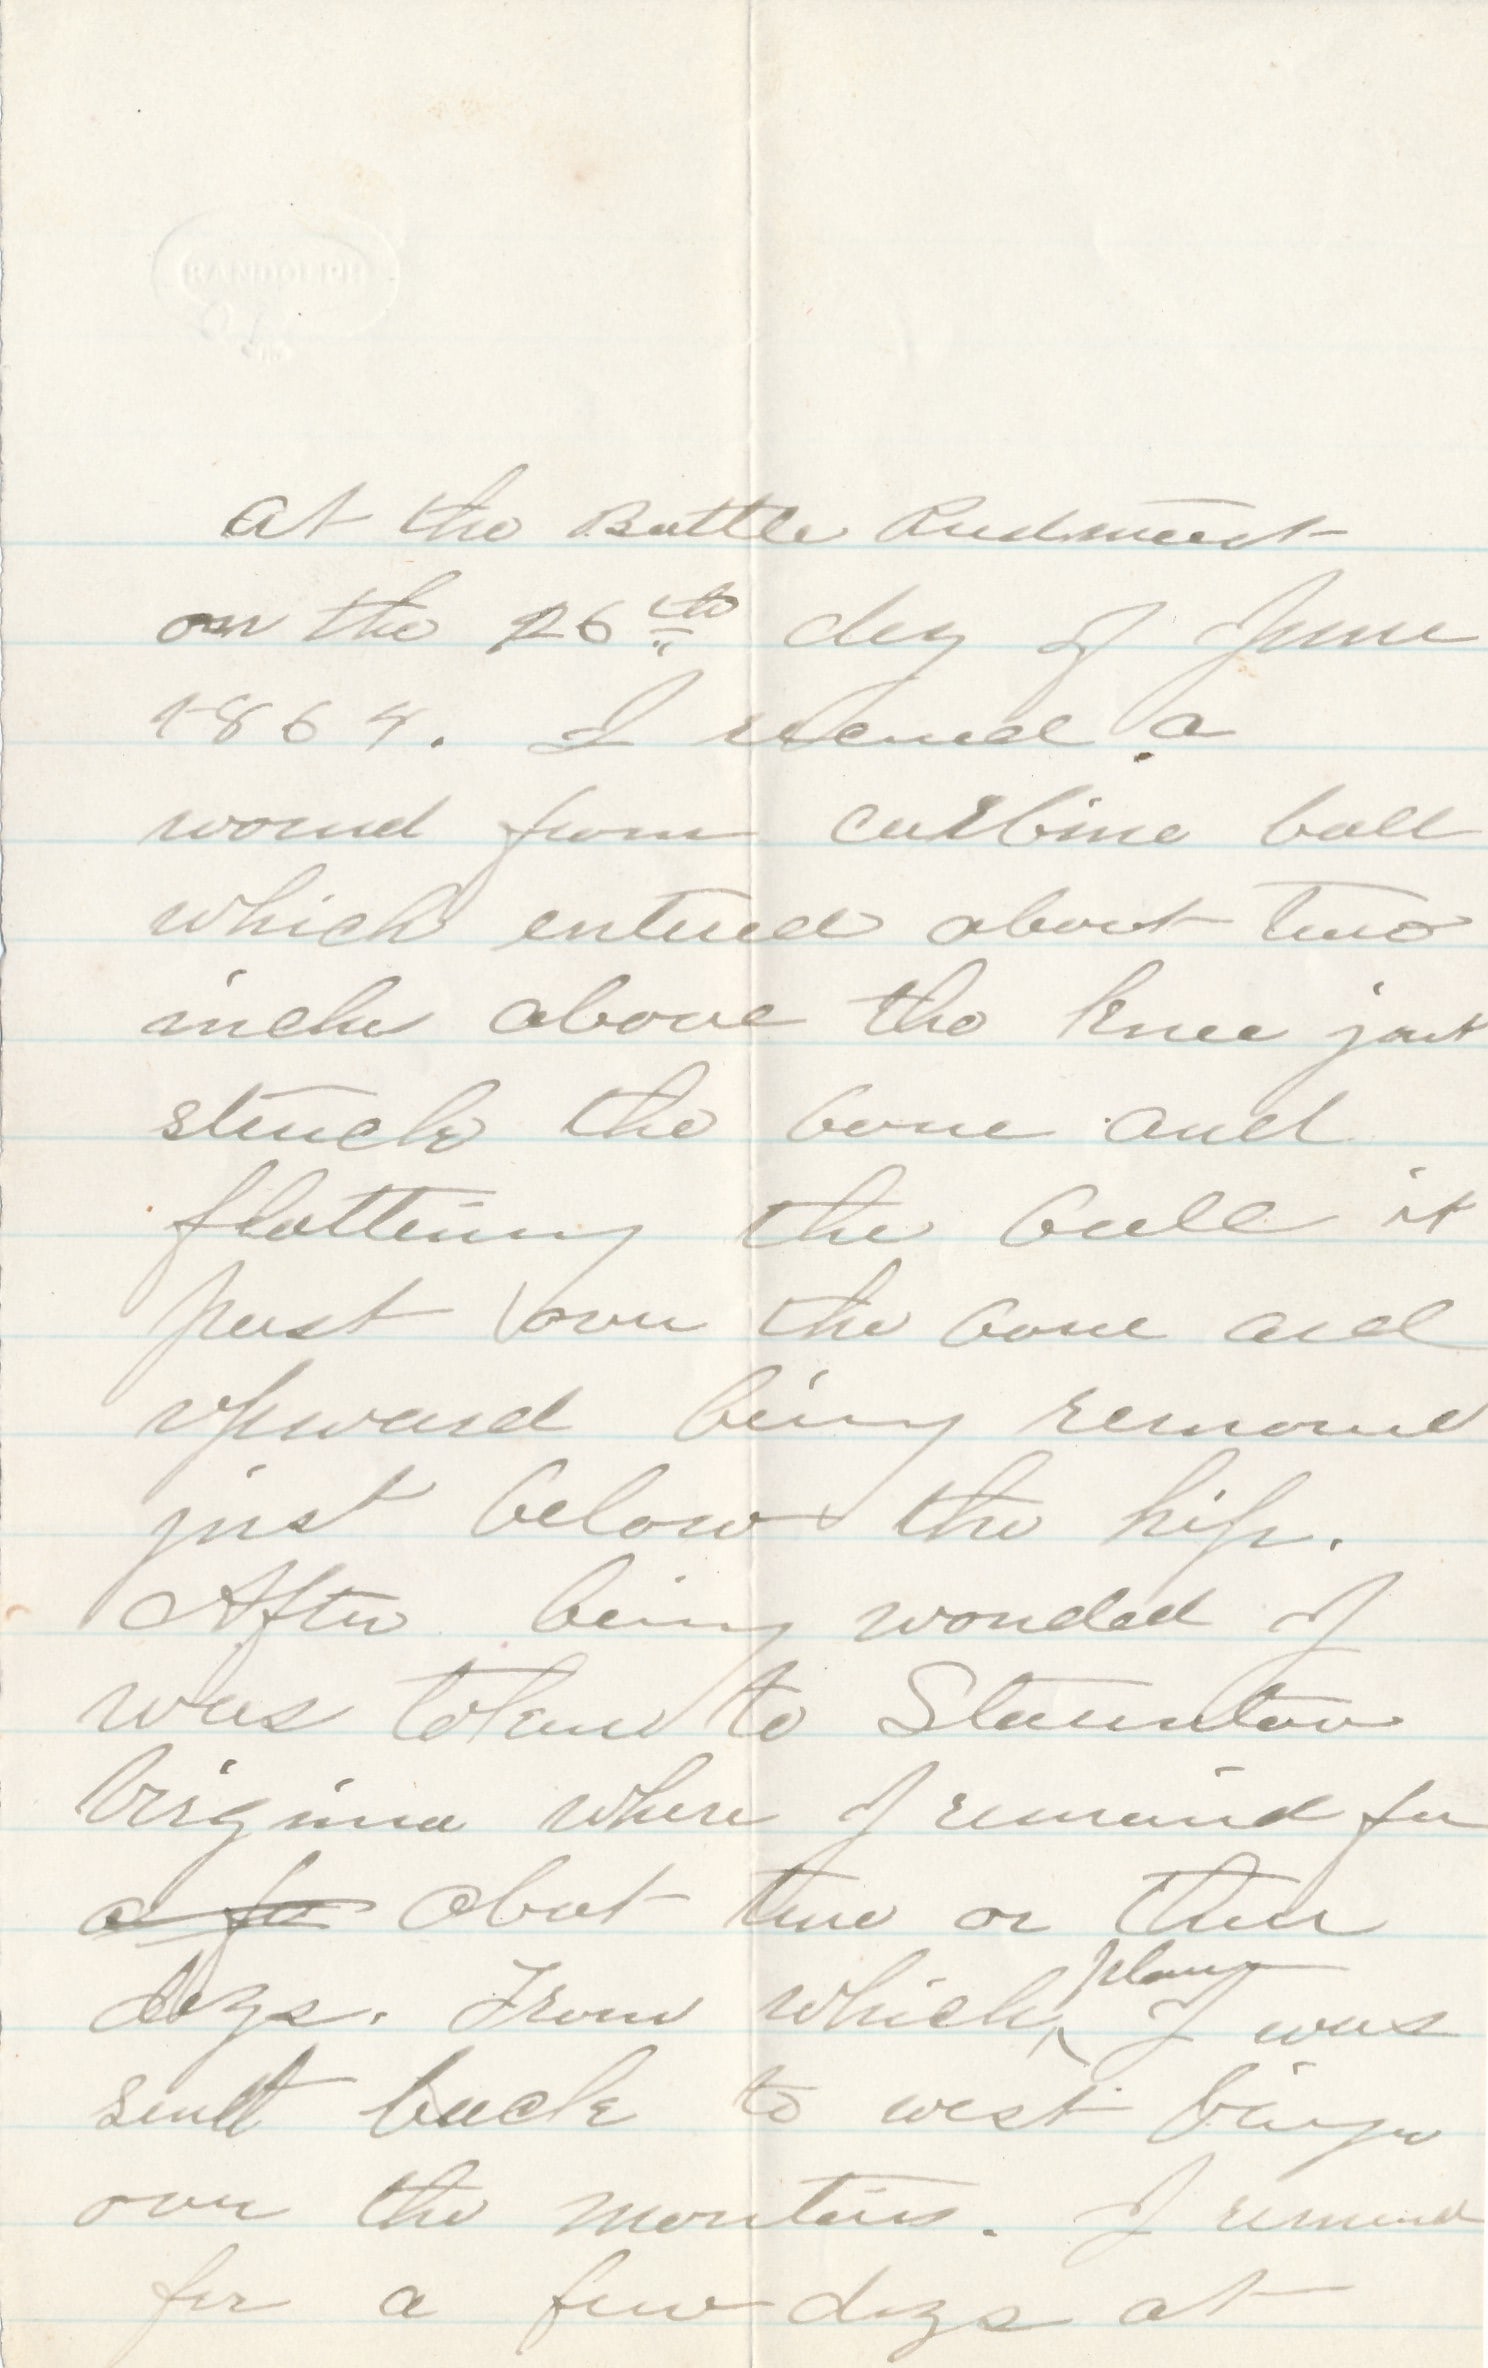 RANDOLPH
At the Battle Piedmont
on the 26th day of June
1864. I received a
wound from carbine ball
which entered about two
inches above the knee joint
struck the bone and
flattening the ball it
past over the bone and
upward being removed
just below the hip.
After being wonded I
was taken to Staunton
Virginia where I remaind for
a fe abut two or three
days. From which place I was
sent back to west Virginia
over the montains. I remaind
for a few days at